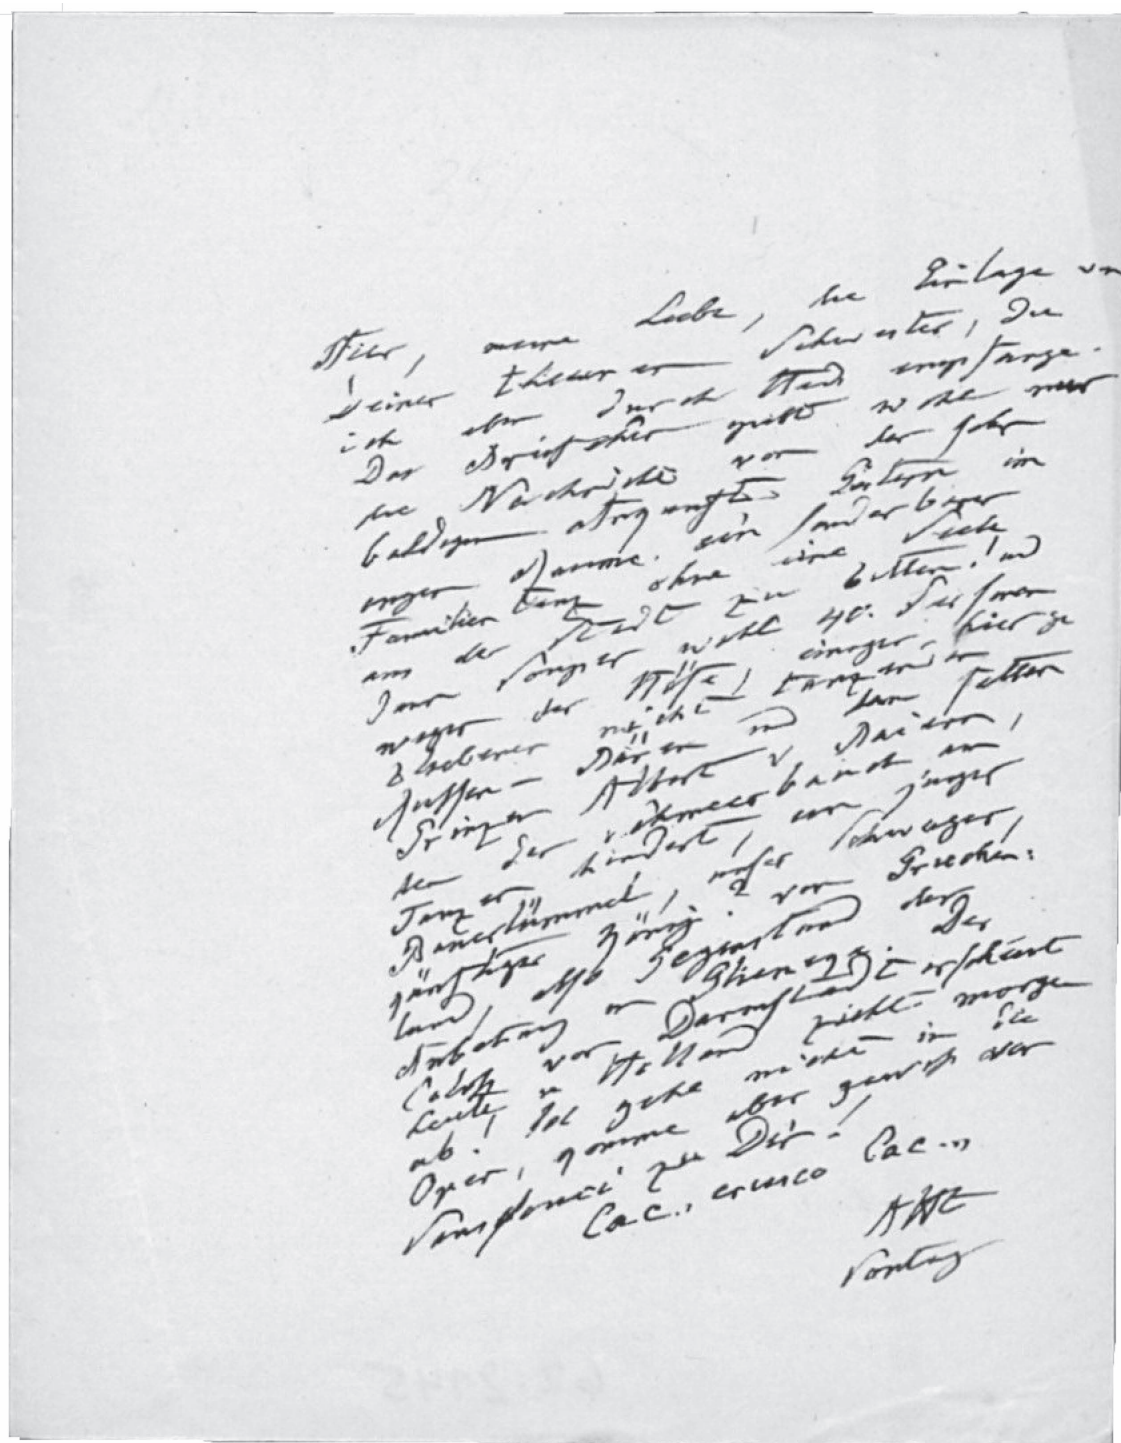 Hier, meine Liebe, die Einlage von
Deiner theueren Schwester, die
ich eben durch empfange.
Das giebt wohl nur
die Nachricht von der sehr
baldigen Gestern im
engen Raume. ein sonderbarer
Familientanz ohne eine Seele
aus der Stadt zu bitten! und
zum Souper wohl 40. Personen
wegen der Höfe, einiger hierge
bliebener nicht tanzender
Russen- Bären und dem fetten
Prinzen Albert v Baiern,
den der Schmeerbauch am
Tanzen hindert, ein junger
Bauerlümmel, unser Schwager,
König? von Griechen:
land, also Gegenstand der
Anbetung in Glienegge. Der
von Darmstadt erscheint
heute u Holland zieht morgen
ab! Ich gehe nicht in die
Oper, komme aber gewiß vor
Sanssouci zu Dir!
Cac.. Cac..
AHt
Sontag